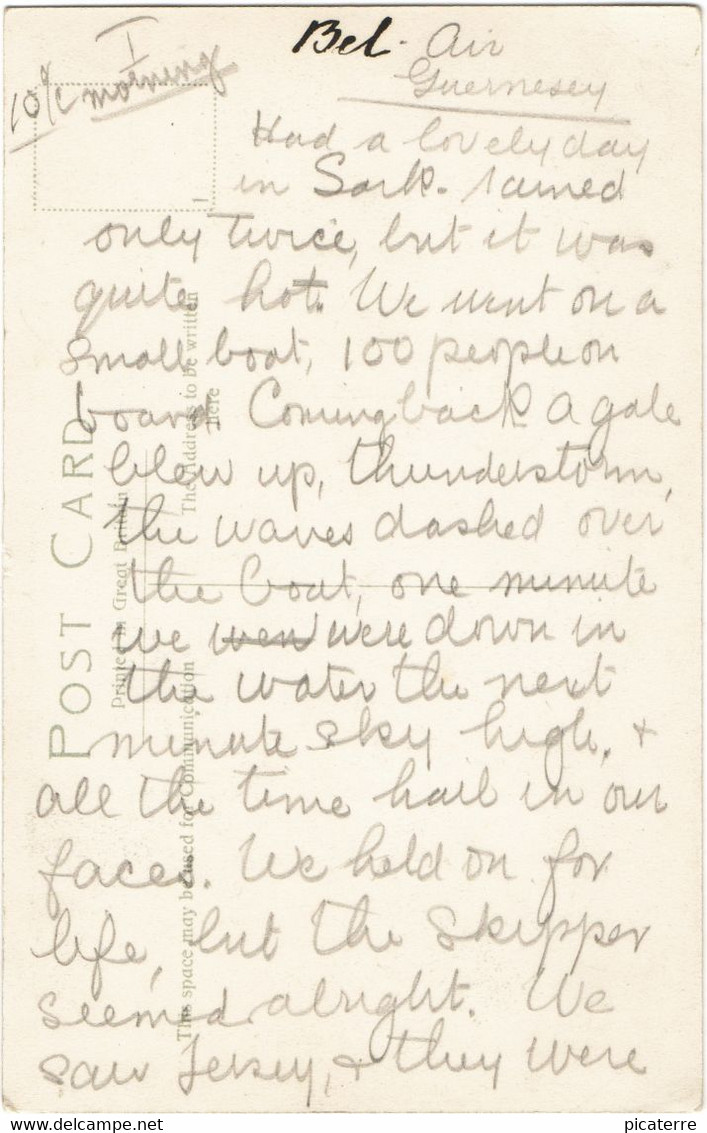 I
Bel-Air
Guernesey
morning
Had a lovely day
in Sark. rained
only twice, but it was
quite hot. We went on a
small boat, 100 people on
board Coming back a gale
blew up, thunderstorm,
the waves dashed over
the boat, one minute
we wen were down in
the water the next
minute sky high, +
all the time hail in our
faces. We held on for
life, but the skipper
seemed alright. We
saw Jersey, + they were
POST CARD
Printed in Great Britain
This space may be used for Communication
The Address to be written
here
delcampe.net
picaterre